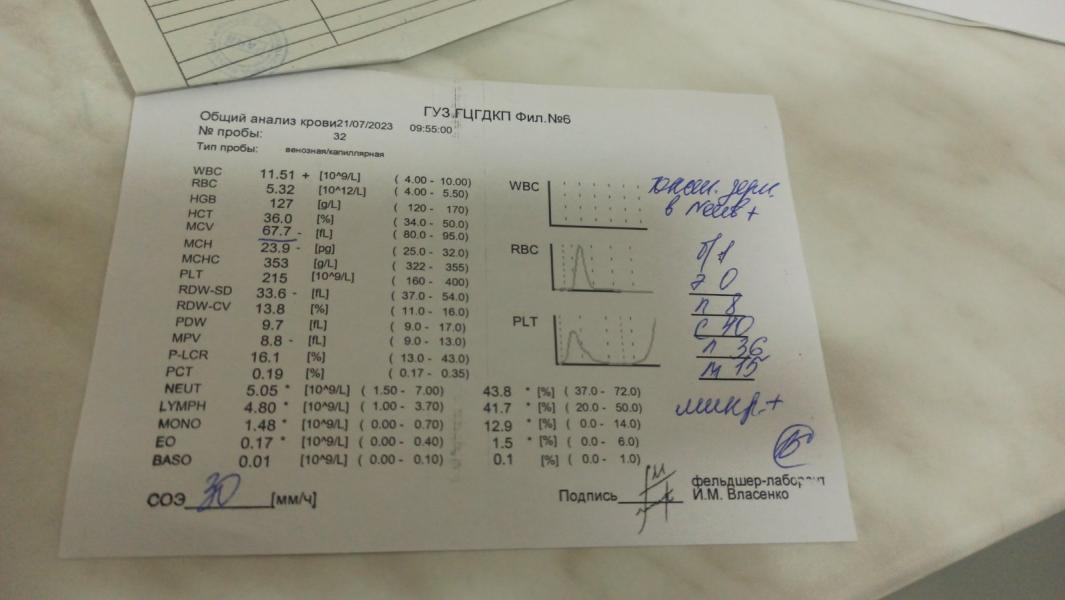 ГУЗ ГЦГДКП Фил.№6
Общий анализ крови21/07/2023 09:55:00
№ пробы: 32
Тип пробы: венозная/капиллярная
WBC 11.51 + [10^9/L] ( 4.00 - 10.00)
RBC 5.32 [10^12/L] ( 4.00 - 5.50)
HGB 127 [g/L] ( 120 - 170)
HCT 36.0 [%] ( 34.0 - 50.0)
MCV 67.7 - [fL] ( 80.0 - 95.0)
MCH 23.9 - [pg] ( 25.0 - 32.0)
MCHC 353 [g/L] ( 322 - 355)
PLT 215 [10^9/L] ( 160 - 400)
RDW-SD 33.6 - [fL] ( 37.0 - 54.0)
RDW-CV 13.8 [%] ( 11.0 - 16.0)
PDW 9.7 [fL] ( 9.0 - 17.0)
MPV 8.8 - [fL] ( 9.0 - 13.0)
P-LCR 16.1 [%] ( 13.0 - 43.0)
PCT 0.19 [%] ( 0.17 - 0.35)
NEUT 5.05 * [10^9/L] ( 1.50 - 7.00) 43.8 * [%] ( 37.0 - 72.0)
LYMPH 4.80 * [10^9/L] ( 1.00 - 3.70) 41.7 * [%] ( 20.0 - 50.0)
MONO 1.48 * [10^9/L] ( 0.00 - 0.70) 12.9 * [%] ( 0.0 - 14.0)
EO 0.17 * [10^9/L] ( 0.00 - 0.40) 1.5 * [%] ( 0.0 - 6.0)
BASO 0.01 [10^9/L] ( 0.00 - 0.10) 0.1 [%] ( 0.0 - 1.0)
СОЭ 30 [мм/ч]
WBC
RBC
PLT
токсич. зерн.
в Neub +
э 0
п 8
с 40
л 36
м 15
микр. +
Подпись
фельдшер-лаборант
И.М. Власенко